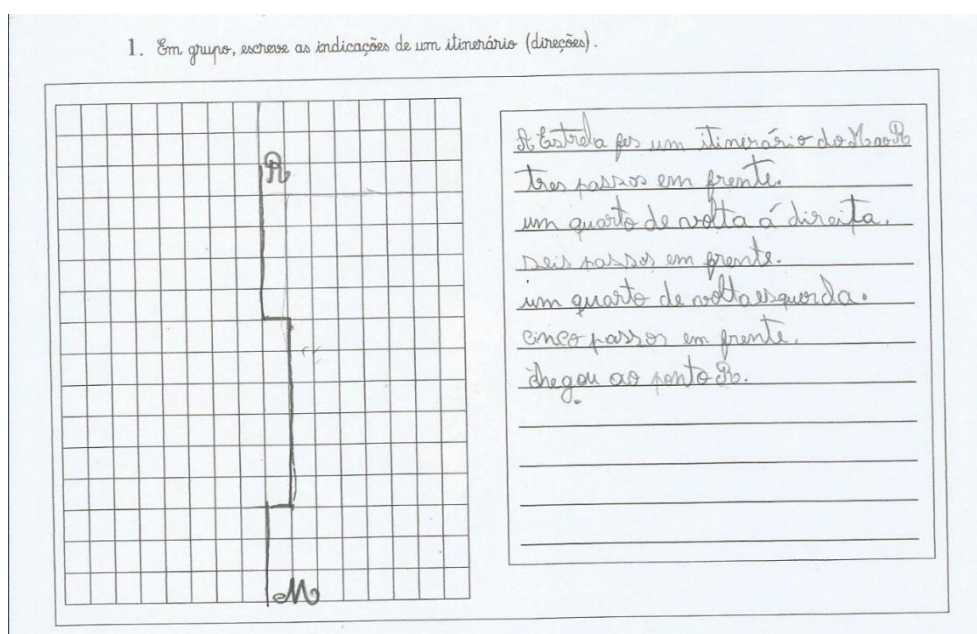 1. Em grupo, escreve as indicações de um itinerário (direções).
R
M
A Estrela fes um itinerário do M ao R
tres passos em frente.
um quarto de volta á direita.
seis passos em frente.
um quarto de volta esquerda.
cinco passos em frente.
chegou ao ponto R.